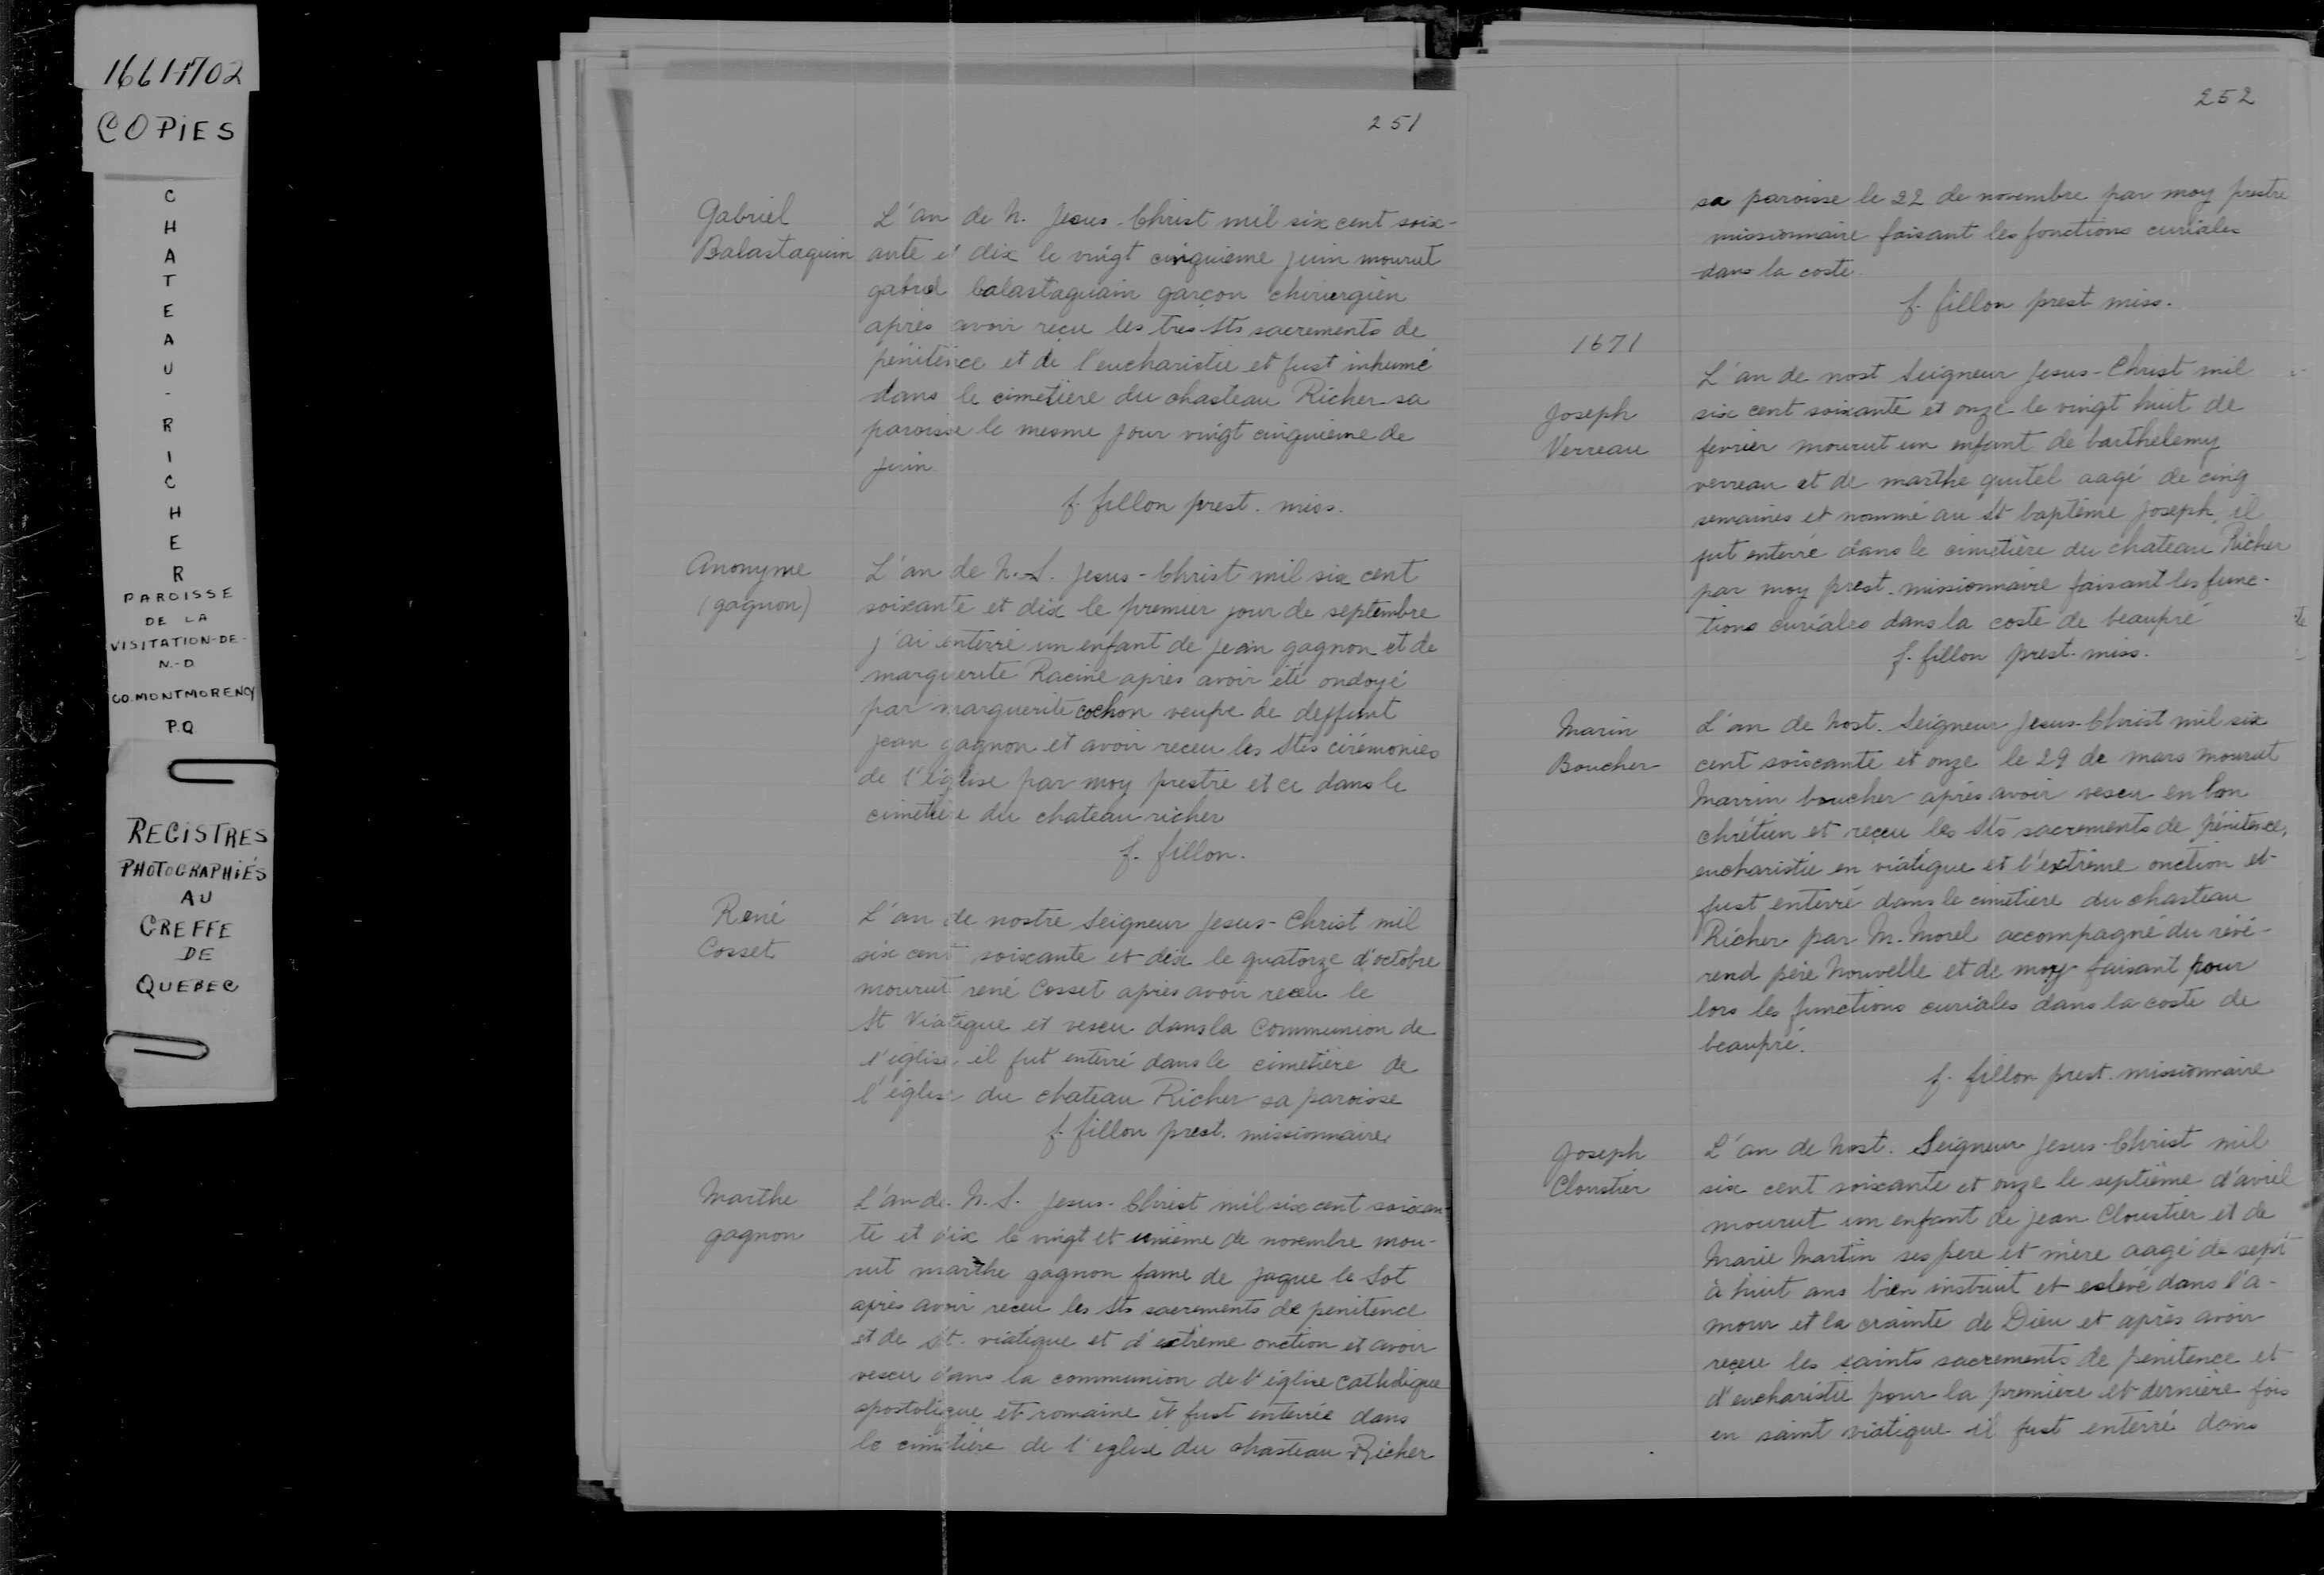 1661-1702
COPIES
CHATEAU-RICHER
PAROISSE
DE LA
VISITATION-DE-
N.-D
CO. MONTMORENCY
P.Q
REGISTRES
PHOTOGRAPHIÉS
AU
GREFFE
DE
QUEBEC
251
Gabriel
Balastaquin
L'an de N. Jesus-Christ mil six cent soix-
ante et dix le vingt cinquieme juin mourut
gabriel balastaquain garçon chirurgien
après avoir reçu les tres Sts sacrements de
pénitence et de l'eucharistie et fust inhumé
dans le cimetiere du chasteau Richer sa
paroisse le mesme jour vingt cinquieme de
juin
f. fillon prest. miss.
Anonyme
(gagnon)
L'an de N.-S. Jesus-Christ mil six cent
soixante et dix le premier jour de septembre
j'ai enterré un enfant de jean gagnon et de
marguerite Racine après avoir été ondoyé
par marguerite cochon veufve de deffunt
jean gagnon et avoir receu les Stes cérémonies
de l'église par moy prestre et ce dans le
cimetière du chateau richer
f. fillon.
René
Cosset
L'an de nostre Seigneur Jesus-Christ mil
six cent soixante et dix le quatorze d'octobre
mourut rené Cosset après avoir receu le
St Viatique et vescu dans la Communion de
l'église il fut enterré dans le cimetière de
l'église du chateau Richer sa paroisse
f. fillon prest. missionnaire
Marthe
gagnon
L'an de N.S. Jesus-Christ mil six cent soixan-
te et dix le vingt et unième de novembre mou-
rut marthe gagnon fame de jaque le Sot
après avoir receu les Sts sacrements de penitence
et de St. viatique et d'extrême onction et avoir
vescu dans la communion de l'église catholique
apostolique et romaine et fust enterrée dans
le cimetière de l'eglise du chasteau Richer
252
sa paroisse le 22 de novembre par moy prestre
missionnaire faisant les fonctions curiales
dans la coste.
f. fillon prest miss.
1671
Joseph
Verreau
L'an de nost Seigneur Jesus-Christ mil
six cent soixante et onze le vingt huit de
fevrier mourut un enfant de barthelemy
verreau et de marthe quitel aagé de cinq
semaines et nommé au St baptême Joseph, il
fut enterré dans le cimetière du chateau Richer
par moy prest. missionnaire faisant les func-
tions curiales dans la coste de beaupré
f. fillon prest. miss.
Marin
Boucher
L'an de Nost. Seigneur Jesus-Christ mil six
cent soixante et onze le 29 de mars mourut
Marrin boucher après avoir vescu en bon
chrétien et reçeu les Sts sacrements de pénitence,
eucharistie en viatique et l'extrême onction et
fust enterré dans le cimetiere du chasteau
Richer par M. Morel accompagné du révé-
rend père Nouvelle et de moy faisant pour
lors les functions curiales dans la coste de
beaupré.
f. fillon prest. missionnaire
Joseph
Cloustier
L'an de Nost. Seigneur Jesus-Christ mil
six cent soixante et onze le septième d'avril
mourut un enfant de jean Cloustier et de
Marie Martin ses pere et mère aagé de sept
à huit ans bien instruit et eslevé dans l'a-
mour et la crainte de Dieu et après avoir
reçeu les saints sacrements de pénitence et
d'eucharistie pour la première et dernière fois
en saint viatique il fust enterré dans